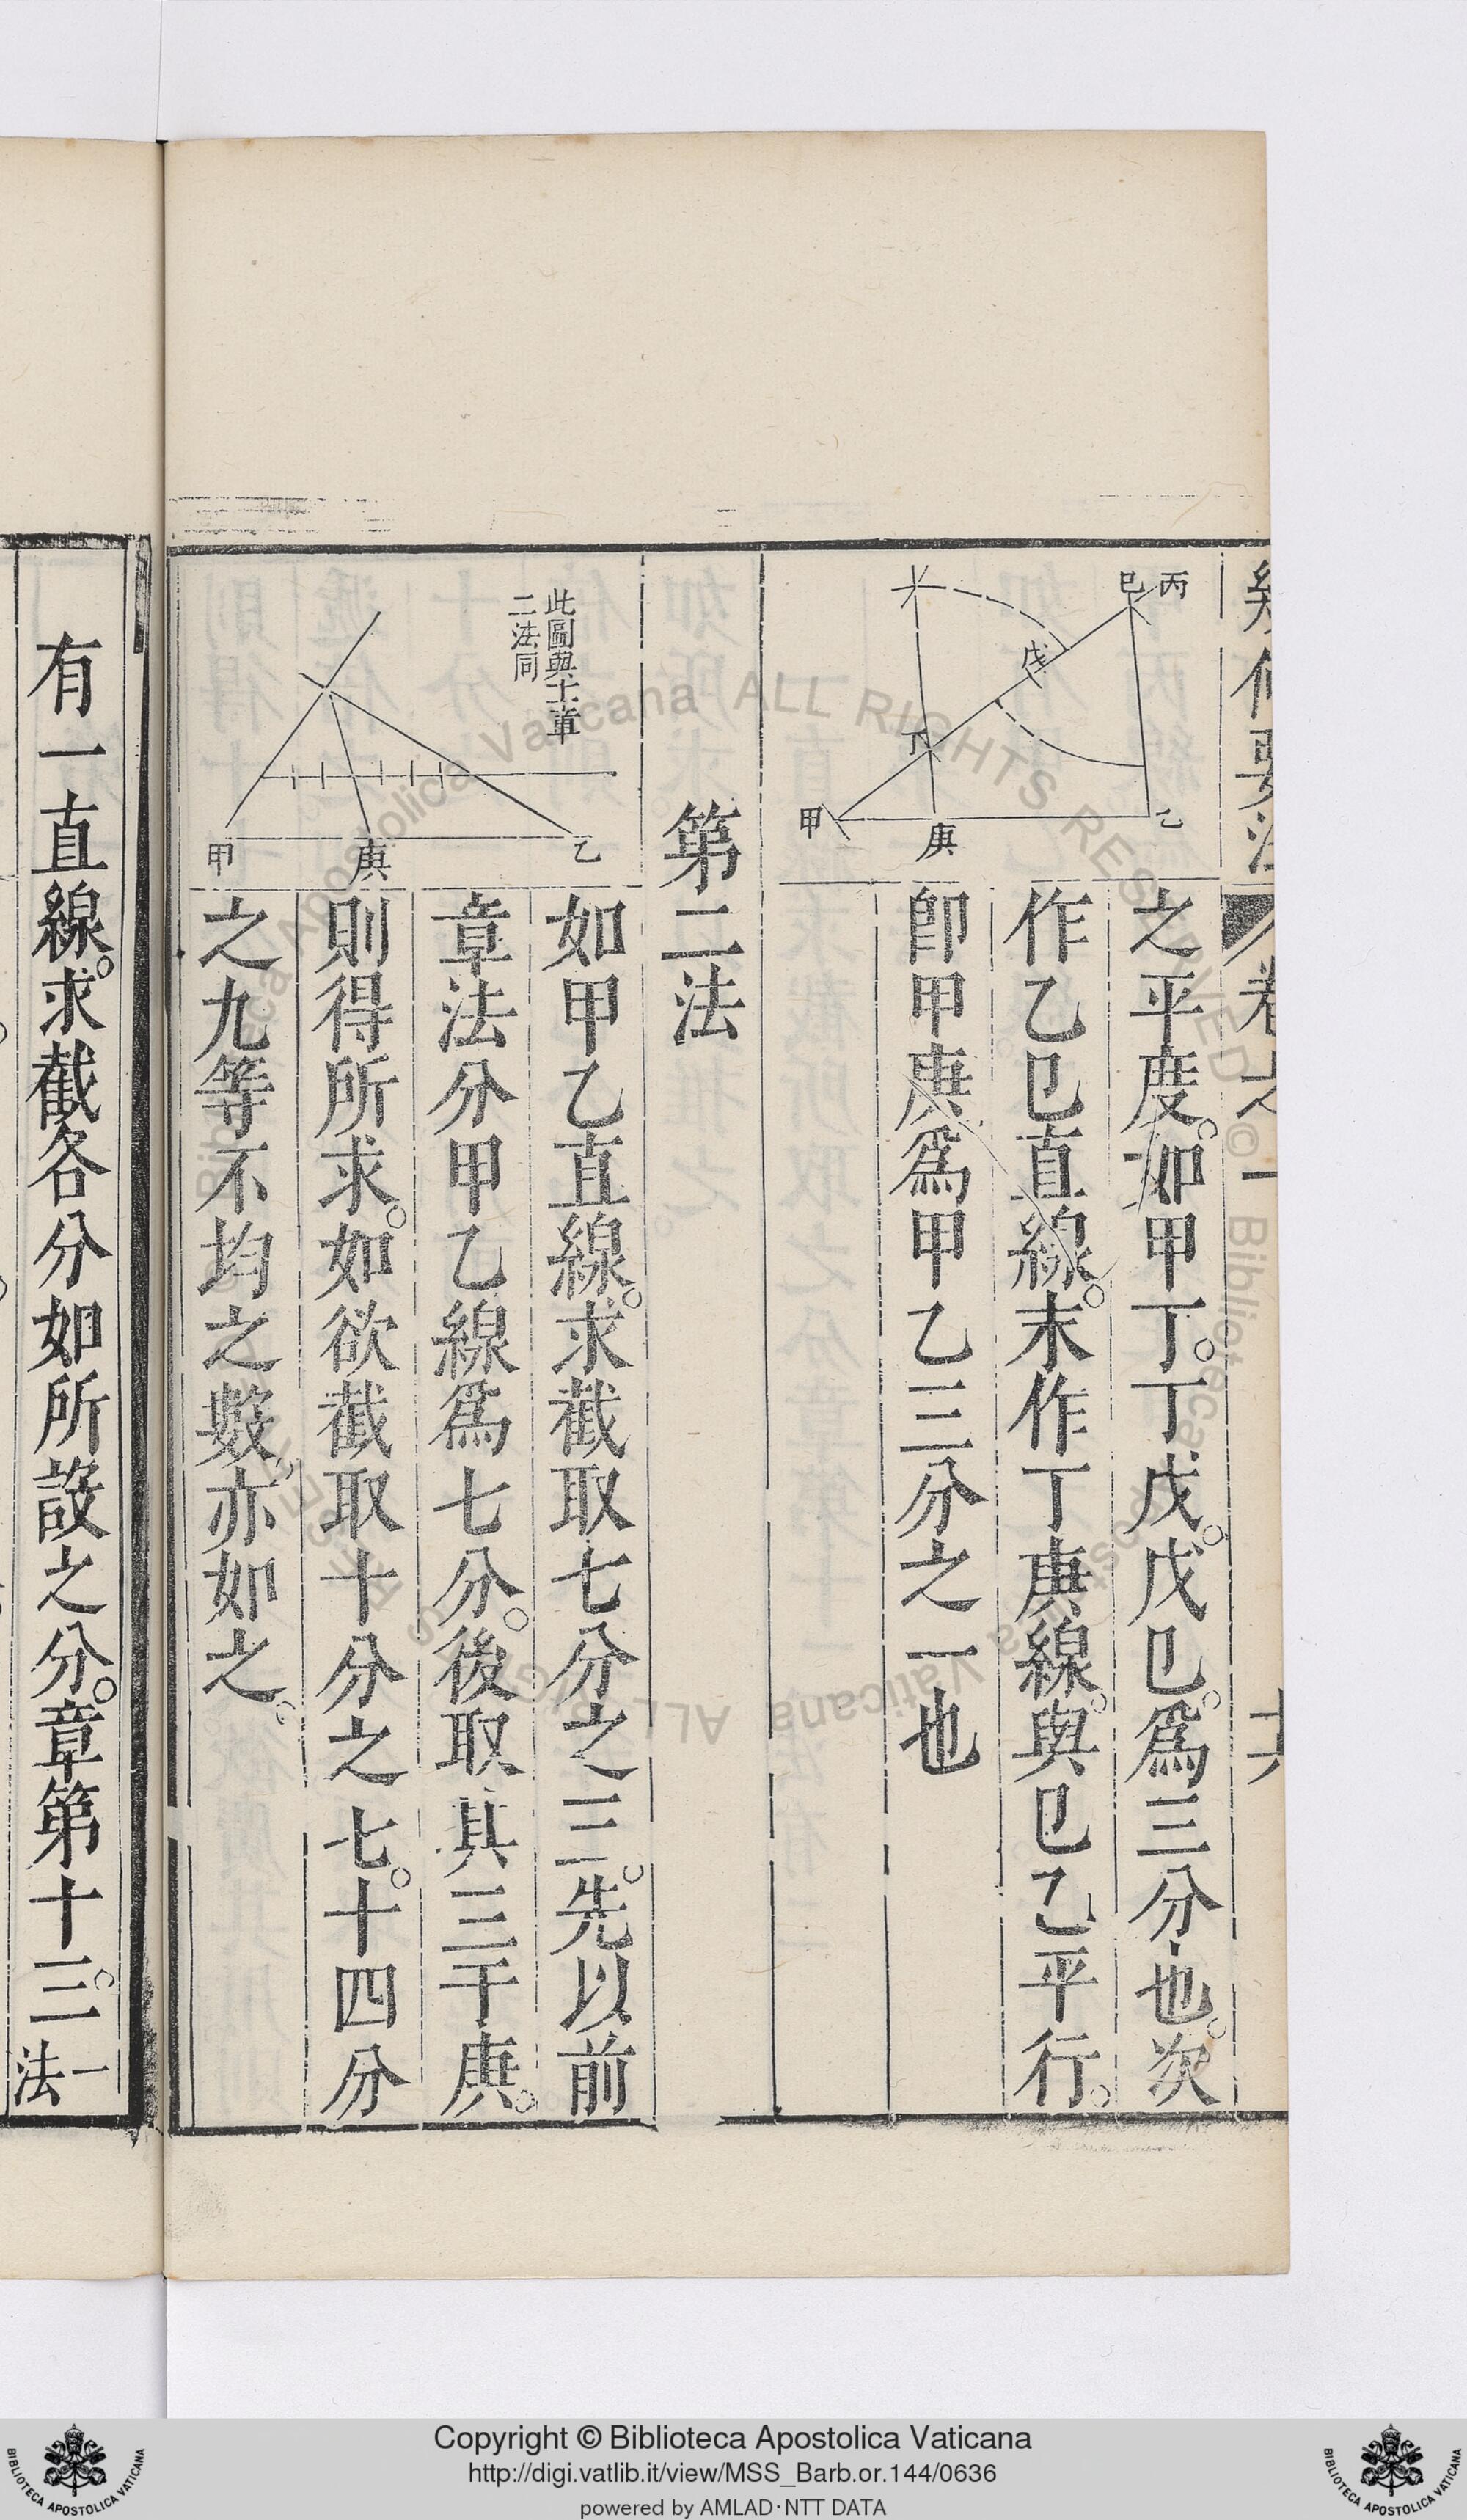 幾何要法 卷之一 十六
丙
巳
戊
丁
甲
庚
乙
之平度。如甲丁。丁戊。戊巳。爲三分也。次
作乙巳直線。末作丁庚線。與巳乙平行。
即甲庚爲甲乙三分之一也
第二法
此圖與十一章
二法同
甲
庚
乙
如甲乙直線。求截取七分之三。先以前
章法分甲乙線爲七分。後取其三于庚。
則得所求。如欲截取十分之七。十四分
之九等不均之數。亦如之。
有一直線。求截各分如所設之分。章第十三。一
法
Copyright © Biblioteca Apostolica Vaticana
http://digi.vatlib.it/view/MSS_Barb.or.144/0636
powered by AMLAD·NTT DATA
BIBLIOTECA APOSTOLICA VATICANA
BIBLIOTECA APOSTOLICA VATICANA